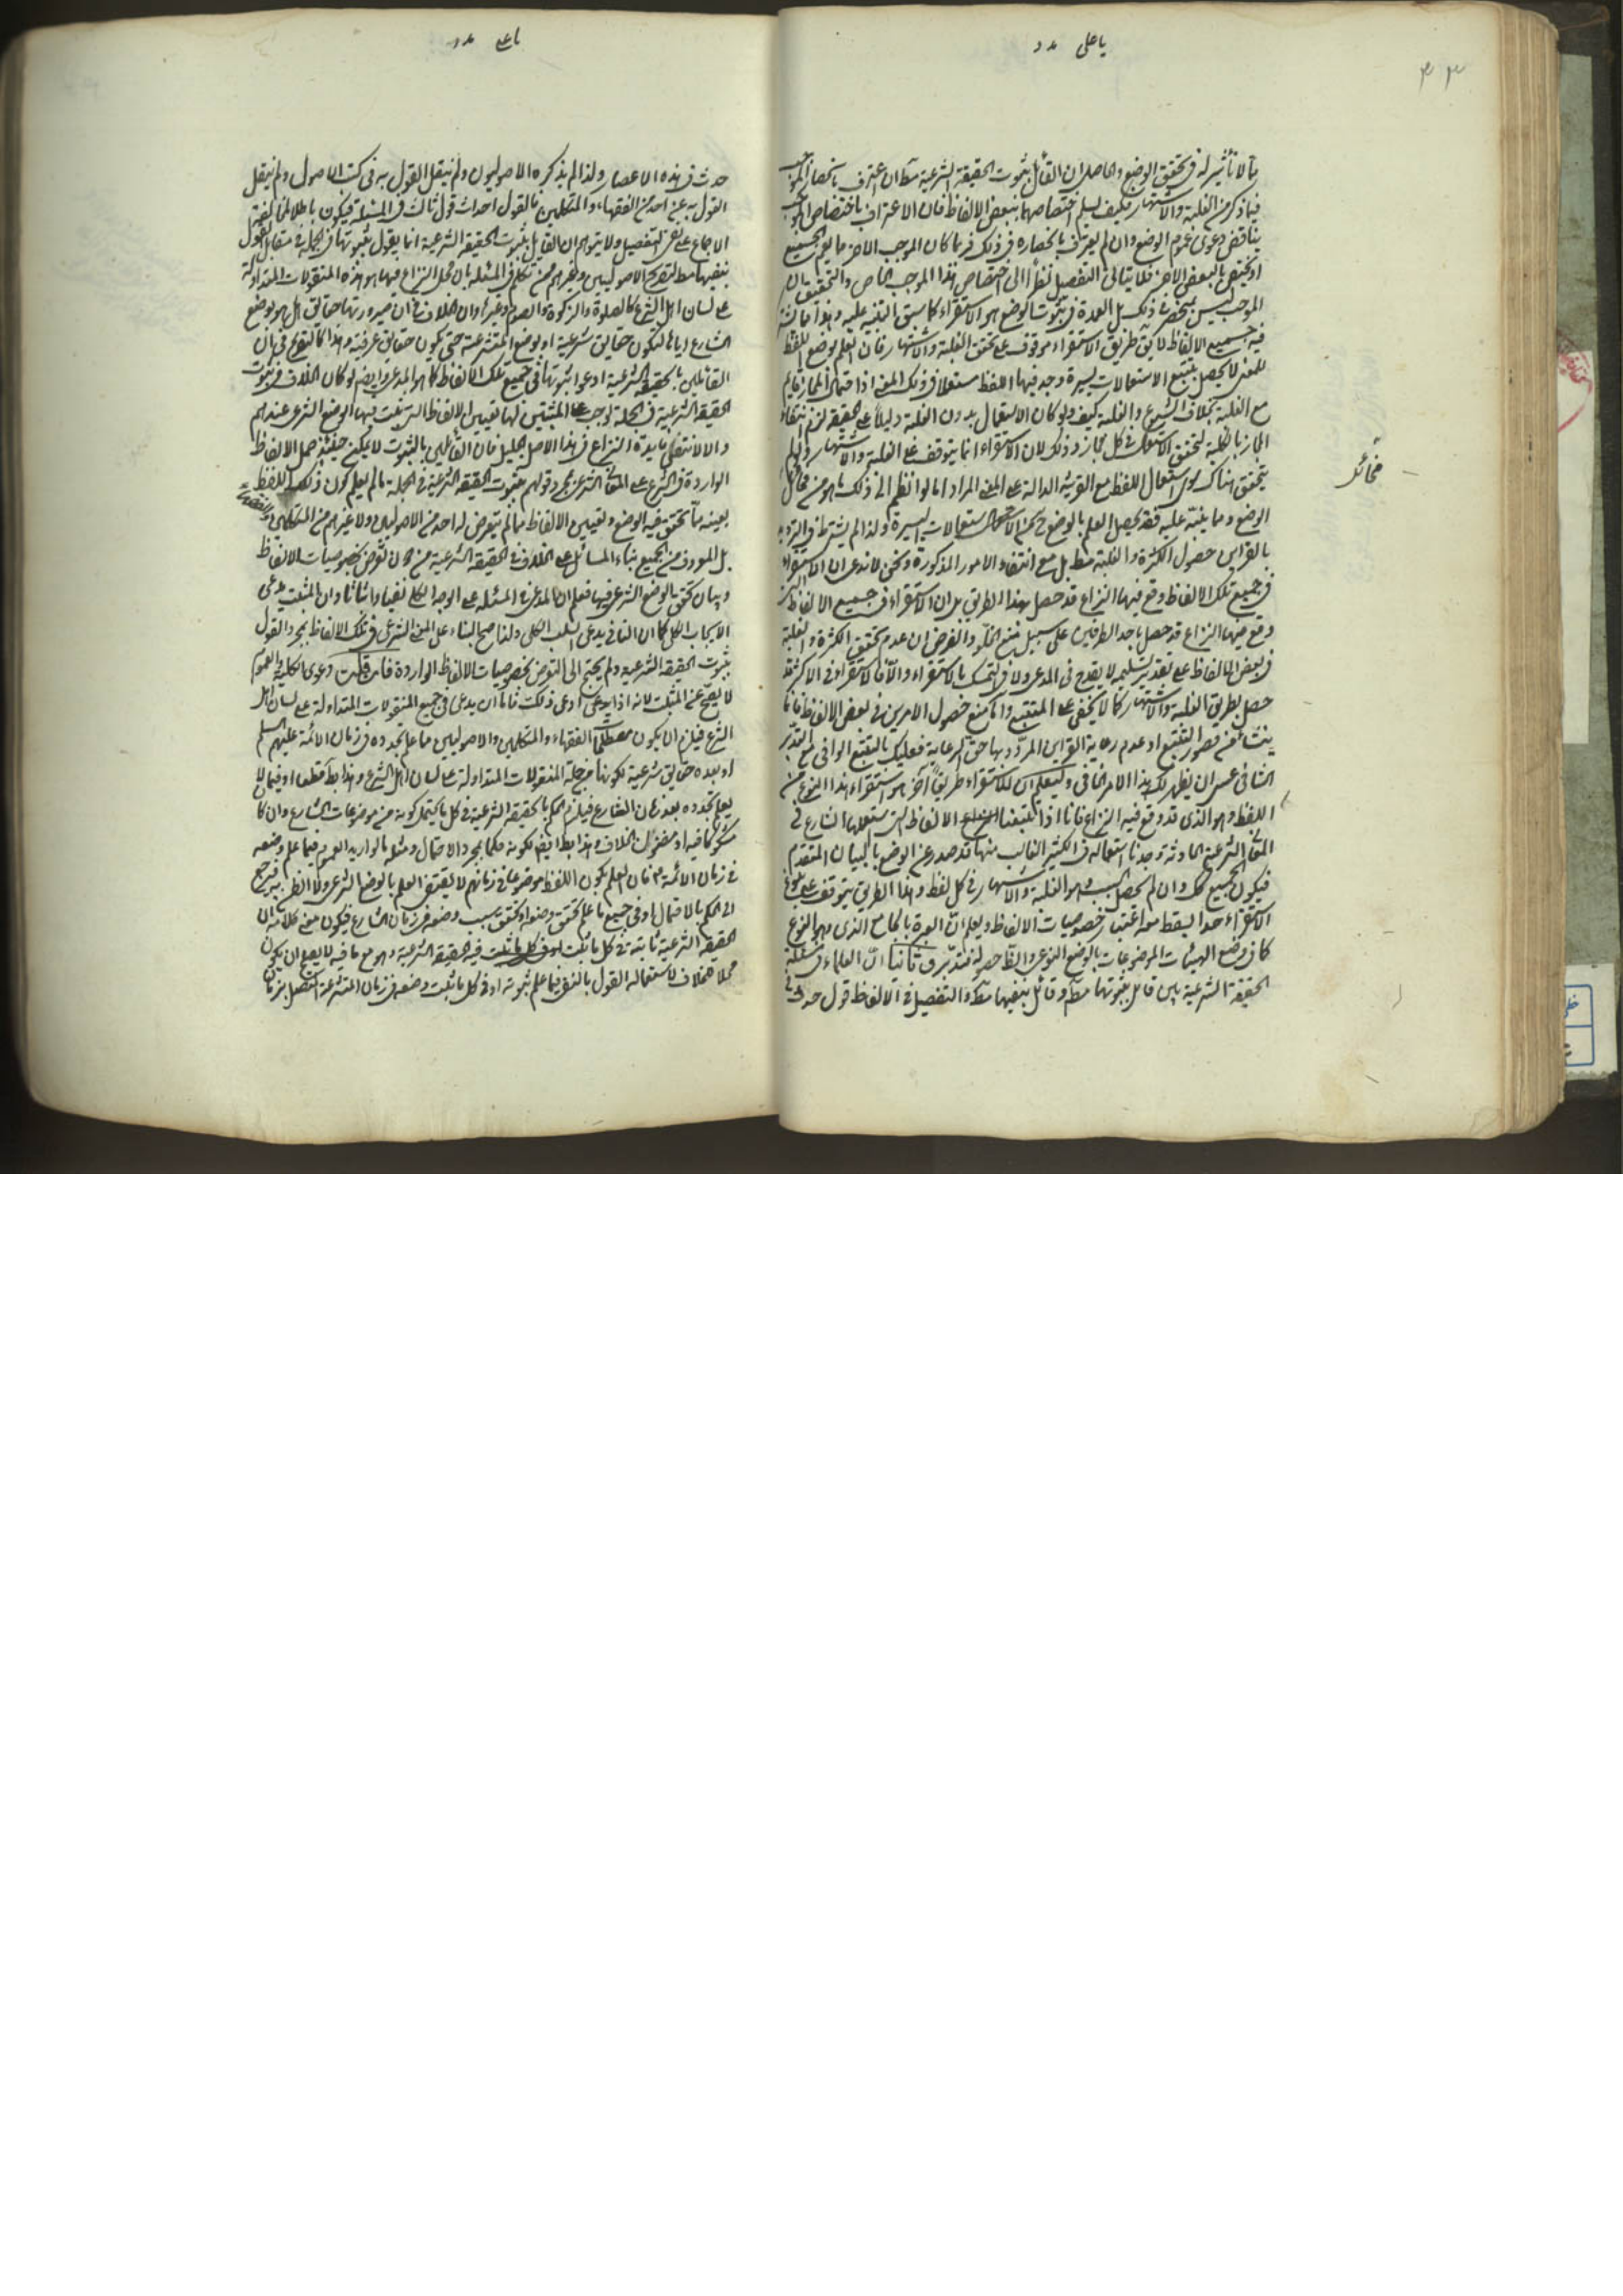 يا على مدد
بما لا تأثير له فى تحقق الوضع والحاصل ان القائل بثبوت الحقيقة الشرعية مط ان اعترف بانحصار الموجب
فيما ذكر من الغلبة والاشتهار فكيف يسلم اختصاصهما ببعض الالفاظ فان الاعتراف باختصاص الموجب
يناقض دعوى عموم الوضع وان لم يعترف بانحصاره فى ذلك فربما كان الموجب الاخر ما يعم الجميع
او يختص بالبعض الاخر فلا يتاتى التفصيل نظرا الى اختصاص هذا الموجب الخاص والتحقيق ان
الموجب ليس بمنحصر فى ذلك بل العمدة فى ثبوت الوضع هو الاستقراء كما سبق التنبيه عليه وهذا مما
فيه جميع الالفاظ لا يق طريق الاستقراء موقوف على تحقق الغلبة والاشتهار فان العلم بوضع اللفظ
للمعنى لا يحصل بتتبع الاستعمالات يسيرة وجد فيها اللفظ مستعملا فى ذلك المعنى اذ احتمال المجاز قائم
مع الغلبة بخلاف الشيوع والغلبة كيف ولو كان الاستعمال بدون الغلبة دليلا على الحقيقة لزم انتفاء
المجاز بالكلية لتحقق الاستعمال فى كل مجاز وذلك لان الاستقراء انما يتوقف على الغلبة والاشتهار اذا لم
يتحقق هناك سوى استعمال اللفظ مع القرينة الدالة على المعنى المراد اما لو انظم الى ذلك ما هو من مخائل
الوضع وما ينبه عليه فقد يحصل العلم بالوضع من الاستعمالات اليسيرة ولذا لم يشترط فى الترديد
بالقراين حصول الكثرة والغلبة مط بل مع انتفاء الامور المذكورة ونحن لا ندعى ان الاستقراء
فى جميع تلك الالفاظ وقع فيها النزاع قد حصل بهذا الطريق بل ان الاستقراء فى جميع الالفاظ التى
وقع فيها النزاع قد حصل باحد الطرفين على سبيل منع الخلو والغرض ان عدم تحقق الكثرة والغلبة
فى بعض الالفاظ على تقدير تسليمه لا يقدح فى المدعى ولا فى التمسك بالاستقراء والا فالاستقراء فى الاكثر قد
حصل بطريق الغلبة والاشتهار كما لا يخفى على المتتبع وانما منع حصول الامرين فى بعض الالفاظ فانما
ينشأ من قصور التتبع او عدم رعاية القراين المردود بها حق الرعاية فعليك بالتتبع الوافى مع التدبر
الشافى عسى ان يظهر لك هذا الامر الخافى وليعلم ان للاستقراء طريقا آخر هو استقراء هذا النوع من
اللفظ وهو الذى قد وقع فيه النزاع فانا اذا تتبعنا الالفاظ التى استعملها الشارع فى
المعانى الشرعية الحادثة وجدنا استعماله فى الكثير الغالب منها قد صدر عن الوضع بالبيان المتقدم
فيكون الجميع كك وان لم يحصل السبب وهو الغلبة والاشتهار فى كل لفظ وهذا الطريق يتوقف على بلوغ
الاستقراء حدا يسقط معه اعتبار خصوصيات الالفاظ ويعلم ان العبرة بالجامع الذى هو النوع
كما فى وضع الهيئات الموضوعات بالوضع النوعى والظ حصوله فتدبر ق ثانيا ان العلماء فى مسئلة
الحقيقة الشرعية بين قائل بثبوتها مط وقائل بنفيها مط والتفصيل فى الالفاظ قول حدث فى
مخائل
يا على مدد
حدث فى هذه الاعصار ولذا لم يذكره الاصوليون ولم ينقل القول به فى كتب الاصول ولم ينقل
القول به عن احد من الفقهاء والمتكلمين فالقول احداث قول ثالث فى المسئلة فيكون باطلا لمخالفته
الاجماع على نفى التفصيل ولا يتوهم ان القائل بثبوت الحقيقة الشرعية انما يقول بثبوتها فى الجملة فى مقابل القول
بنفيها مط لتصريح الاصوليين وغيرهم ممن تكلم فى المسئلة بان محل النزاع فيها هو هذه المنقولات المتداولة
على لسان اهل الشرع كالصلوة والزكوة والصوم وغيرها وان الخلاف فى ان صيرورتها حقائق هل هو بوضع
الشارع اياها لتكون حقايق شرعية او بوضع المتشرعة حتى يكون حقايق عرفية وهذا كالتصريح فى ان
القائلين بالحقيقة الشرعية ادعوا ثبوتها فى جميع تلك الالفاظ كما هو المدعى وايضا لو كان الخلاف فى ثبوت
الحقيقة الشرعية فى الجملة لوجب على المثبتين لها تعيين الالفاظ التى يثبت فيها الوضع الشرعى عندهم
والا لانتفى فايدة النزاع فى هذا الاصل الجليل فان القائلين بالثبوت لا يمكنهم حينئذ حمل الالفاظ
الواردة فى الشرع على المعانى الشرعى بمجرد قولهم بثبوت الحقيقة الشرعية فى الجملة ما لم يعلم كون ذلك اللفظ
بعينه مما تحقق فيه الوضع وتعيين الالفاظ مما لم يتعرض له احد من الاصوليين ولا غيرهم من المتكلمين والفقهاء
بل المعروف من الجميع بناء المسائل على الخلاف فى الحقيقة الشرعية من دون تعرض لخصوصيات الالفاظ
وبيان تحقق الوضع الشرعى فيها فعلم ان المدعى فى المسئلة على الوجه الكلى نفيا واثباتا وان المثبت يدعى
الايجاب الكلى كما ان النافى يدعى السلب الكلى ولذا صح البناء على المعنى الشرعى فى تلك الالفاظ بمجرد القول
بثبوت الحقيقة الشرعية ولم يحتج الى التعرض لخصوصيات الالفاظ الواردة فان قلت دعوى الكلية والعموم
لا يصح عن المثبت لانه اذا ادعى ذلك فاما ان يدعى فى جميع المنقولات المتداولة على لسان اهل
الشرع فيلزم ان يكون مصطلحات الفقهاء والمتكلمين والاصوليين مما علم تجدده فى زمان الائمة عليهم السلم
او بعده حقايق شرعية لكونها من جملة المنقولات المتداولة على لسان اهل الشرع وهذا بط قطعا او فيما لم
يعلم تجدده بعد زمان الشارع فيلزم الحكم بالحقيقة الشرعية فى كل ما يحتمل كونه من موضوعات الشارع وان كان
مشكوكا فيه او مظنون الخلاف وهذا بط ايضا لكونه حكما بمجرد الاحتمال ومثله ما لو اريد العموم فيما علم وضعه
فى زمان الائمة ع فان العلم بكون اللفظ موضوعا فى زمانهم لا يقتضى العلم بالوضع الشرعى ولا الظن به فيرجع
الى الحكم بالاحتمال او فى جميع ما علم تحقق وضعه او تحقق سبب وضعه فى زمان الشارع فيكون معنى كلامه ان
الحقيقة الشرعية ثابتة فى كل ما ثبت فيه الحقيقة الشرعية وهو مع ما فيه لا يصلح ان يكون
محلا للخلاف لاستحالة القول بالنفى فيما علم ثبوته او فى كل ما ثبت وضعه فى زمان المتشرعة